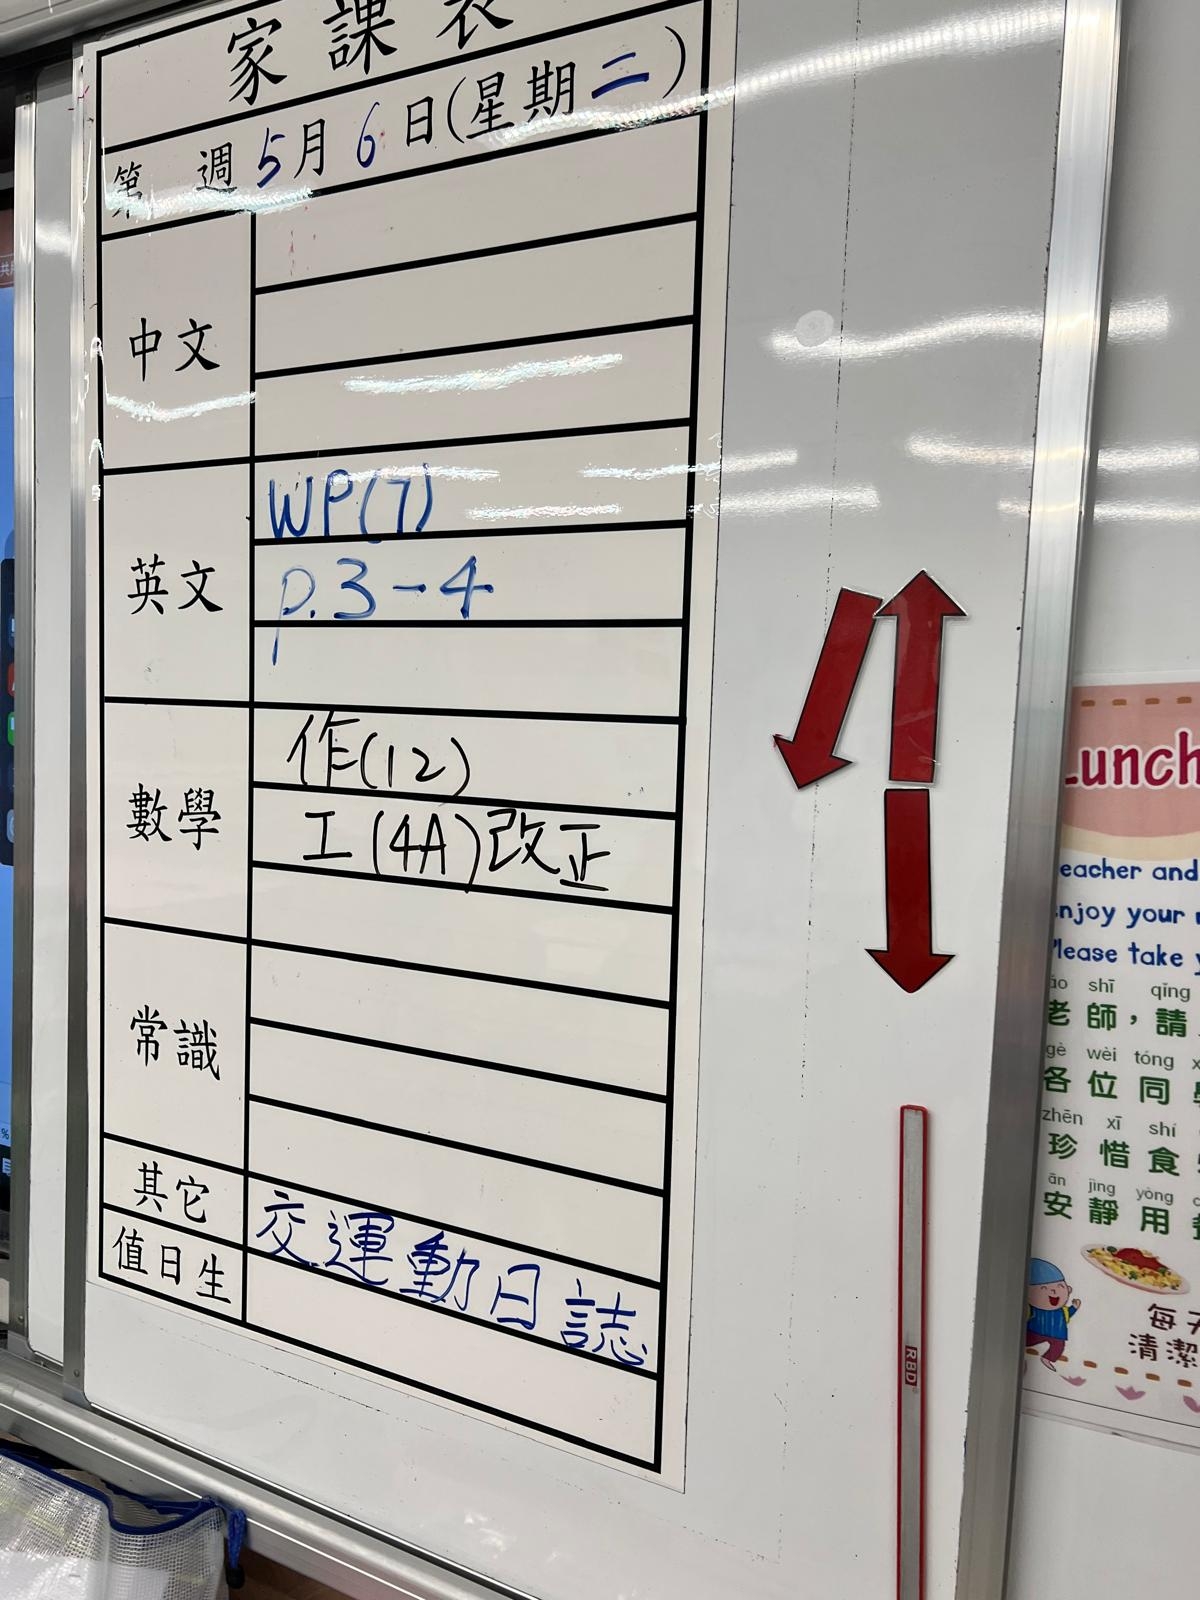 家課表
第 週 5月6日(星期二)
中文
英文
WP(7)
p.3-4
數學
作(12)
工(4A)改正
常識
其它
交運動日誌
值日生
RBD
Lunch
eacher and
njoy your
Please take
shī qīng
老師，請
gè wèi tóng
各位同
zhēn xī shí
珍惜食
ān jìng yòng
安靜用
每天
清潔